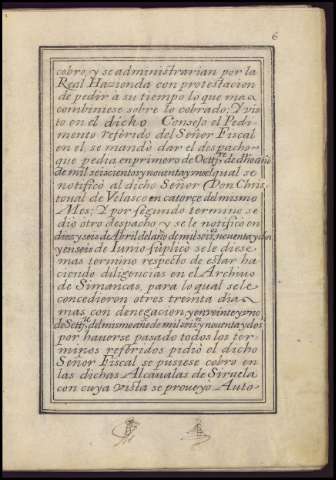 6
cobro, y se administrarian por la
Real Hazienda con protestacion
de pedir à su tiempo lo que mas
combiniese sobre lo cobrado; Y vis
to en el dicho Consejo el Pedi-
mento referido del Señor Fiscal
en el, se mandò dar el despacho
que pedia en primero de Octt.re de dho año
de mil seiscientos y nouenta y nueue el qual se
notificò al dicho Señor Don Chris
toual de Velasco en catorce del mismo
Mes; Y por segundo termino se
diò otro despacho y se le notifico en
diez y seis de Abril del año de mil seis.os nouenta y dos
y en seis de Iunio suplicò se le diese
mas termino respecto de estar ha
ciendo diligencias en el Archiuo
de Simancas, para lo qual se le
concedieron otros treinta dias
mas con denegacion, y en veinte y
de Sett.re del mismo año de mil seis.os y nouenta y dos
por hauerse pasado todos los ter-
minos referidos pidiò el dicho
Señor Fiscal se pusiese cobro en
las dichas Alcaualas de Siruela
con cuya vista se proueyo Auto-